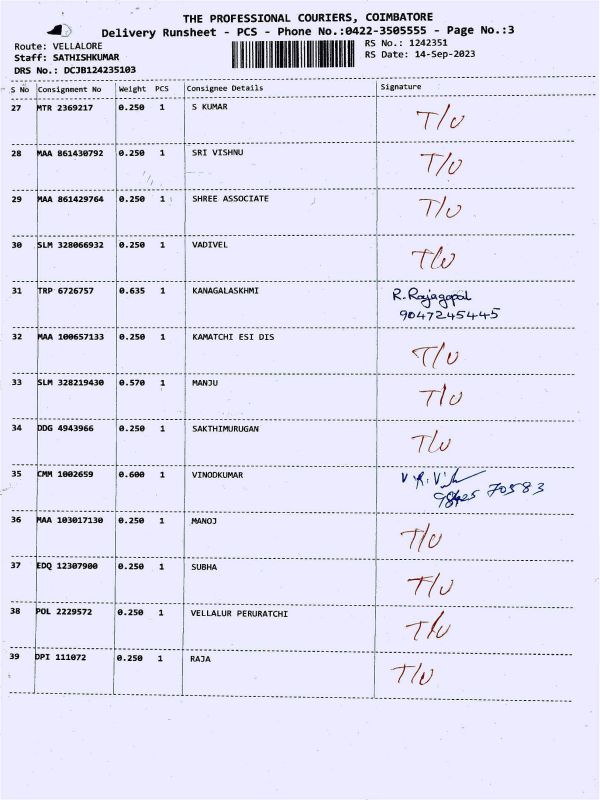 THE PROFESSIONAL COURIERS, COIMBATORE
Delivery Runsheet - PCS - Phone No.:0422-3505555 - Page No.:3
Route: VELLALORE RS No.: 1242351
Staff: SATHISHKUMAR RS Date: 14-Sep-2023
DRS No.: DCJB124235103
S No Consignment No Weight PCS Consignee Details Signature
27 MTR 2369217 0.250 1 S KUMAR T/U
28 MAA 861430792 0.250 1 SRI VISHNU T/U
29 MAA 861429764 0.250 1 SHREE ASSOCIATE T/U
30 SLM 328066932 0.250 1 VADIVEL T/U
31 TRP 6726757 0.635 1 KANAGALASKHMI R.Rajagopal
9047245445
32 MAA 100657133 0.250 1 KAMATCHI ESI DIS T/U
33 SLM 328219430 0.570 1 MANJU T/U
34 DDG 4943966 0.250 1 SAKTHIMURUGAN T/U
35 CMM 1002659 0.600 1 VINODKUMAR
70583
36 MAA 103017130 0.250 1 MANOJ T/U
37 EDQ 12307900 0.250 1 SUBHA T/U
38 POL 2229572 0.250 1 VELLALUR PERURATCHI T/U
39 DPI 111072 0.250 1 RAJA T/U